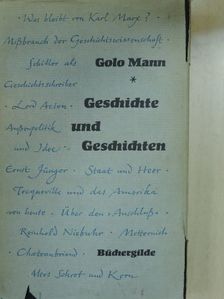 · Was bleibt von Karl Marx? ·
Mißbrauch der Geschichtswissenschaft ·
Schiller als Golo Mann
Geschichtsschreiber *
· Lord Acton · Geschichte
Außenpolitik und
und Idee · Geschichten
Ernst Jünger · Staat und Heer ·
Tocqueville und das Amerika
von heute · Über den „Anschluß“ ·
Reinhold Niebuhr · Metternich
· Chateaubriand · Büchergilde
Alers Schrot und Korn